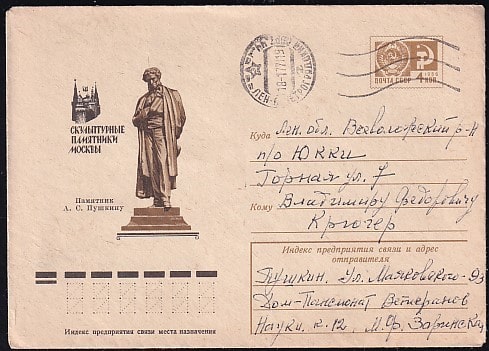 СКУЛЬПТУРНЫЕ
ПАМЯТНИКИ
МОСКВЫ
Памятник
А. С. Пушкину
ПОЧТА СССР
4 КОП.
1966
Куда Лен. обл. Всеволожский р-н
п/о Юкки
Горная ул. 7
Кому Владимиру Федоровичу
Крюгер
Индекс предприятия связи и адрес
отправителя
Пушкин. Ул. Маяковского-93
Дом-Пансионат Ветеранов
Науки. к. 12. М. Ф. Заринская
Индекс предприятия связи места назначения